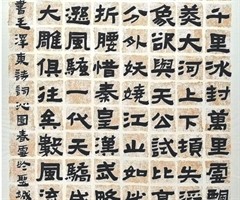 千里冰封萬里雪飄
莽大河上下頓失滔
象欲與天公試比
分外妖嬈江山如此
折腰惜秦皇漢武
遜風騷一代天驕成
大雕俱往矣數風流
書毛澤東詩詞沁園春雪